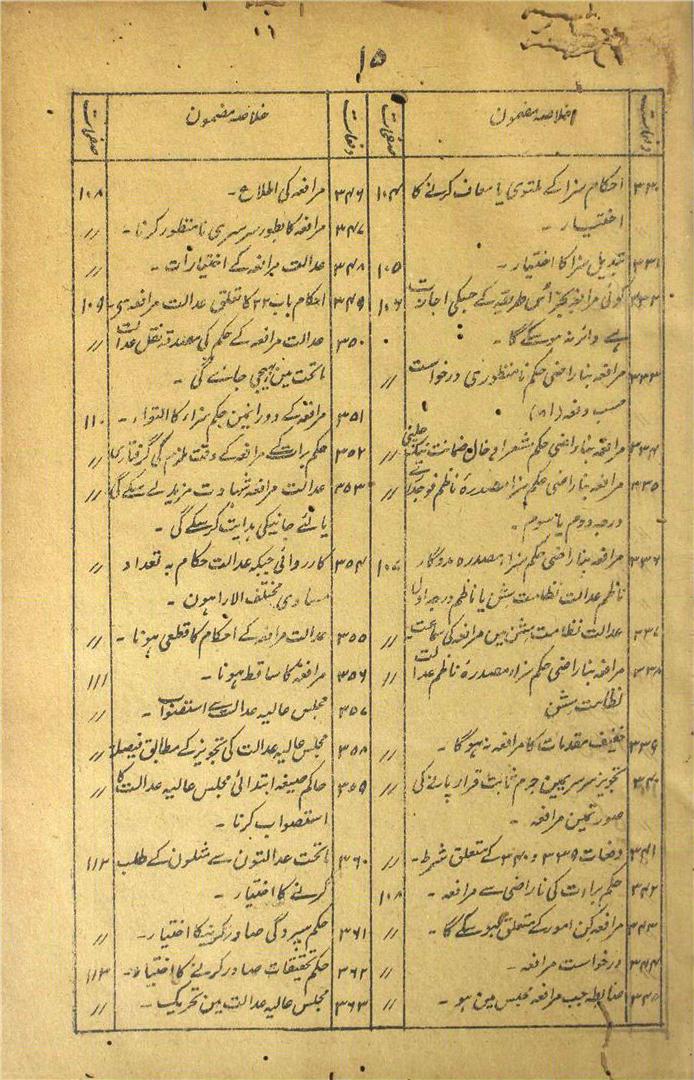 ۱۵
دفعات خلاصہ مضمون صفحات
۳۳۰ احکام سزا کے ملتوی یا معاف کرنے کا ۱۰۴
اختیار ۔
۳۳۱ تبدیل سزا کا اختیار ۔ ۱۰۵
۳۳۲ کوئی مرافعہ بجز اس طریقہ کے جسکی اجازت ۱۰۶
ہے دائر نہ ہوسکے گا ۔
۳۳۳ مرافعہ بناراضی حکم نامنظوری درخواست 〃
حسب دفعہ (۸۱)
۳۳۴ مرافعہ بناراضی حکم مشعر ادخال ضمانت نیک چلنی 〃
۳۳۵ مرافعہ بناراضی حکم سزا مصدرۂ ناظم فوجداری 〃
درجہ دوم یا سوم ۔
۳۳۶ مرافعہ بناراضی حکم سزا مصدرہ مددگار ۱۰۷
ناظم عدالت نظامت سشن یا ناظم درجہ اول
۳۳۷ عدالت نظامت سشن مین مرافعہ کی سماعت 〃
۳۳۸ مرافعہ بناراضی حکم سزا مصدرۂ ناظم عدالت 〃
نظامت سشن
۳۳۹ خفیف مقدمات کا مرافعہ نہ ہوگا ۔ 〃
۳۴۰ تجویز سرسریمین جرم ثابت قرار پانے کی 〃
صورتمین مرافعہ ۔
۳۴۱ دفعات ۳۳۹ و ۳۴۰ کے متعلق شرط ۔ 〃
۳۴۲ حکم براءت کی ناراضی سے مرافعہ ۔ ۱۰۸
۳۴۳ مرافعہ کن امور کے متعلق ہوسکے گا ۔ 〃
۳۴۴ درخواست مرافعہ ۔ 〃
۳۴۵ ضابطہ جب مرافعہ محبس مین ہو ۔ 〃
دفعات خلاصہ مضمون صفحات
۳۴۶ مرافعہ کی اطلاع ۔ ۱۰۸
۳۴۷ مرافعہ کا بطور سرسری نامنظور کرنا ۔ 〃
۳۴۸ عدالت مرافعہ کے اختیارات ۔ 〃
۳۴۹ احکام باب ۲۲ کا تعلق عدالت مرافعہ سے ۔ ۱۰۹
۳۵۰ عدالت مرافعہ کے حکم کی مصدقہ نقل عدالت 〃
ماتحت مین بھیجی جائے گی ۔
۳۵۱ مرافعہ کے دورانمین حکم سزا کا التواء ۔ ۱۱۰
۳۵۲ حکم براءت کے مرافعہ کے وقت ملزم کی گرفتاری 〃
۳۵۳ عدالت مرافعہ شہادت مزید لے سکے گی 〃
یا لئے جانیکی ہدایت کرسکے گی ۔
۳۵۴ کارروائی جبکہ عدالت حکام بہ تعداد 〃
مساوی مختلف الارا ہون ۔
۳۵۵ عدالت مرافعہ کے احکام کا قطعی ہونا ۔ 〃
۳۵۶ مرافعہ کا ساقط ہونا ۔ ۱۱۱
۳۵۷ مجلس عالیہ عدالت سے استصواب ۔ 〃
۳۵۸ مجلس عالیہ عدالت کی تجویز کے مطابق فیصلہ 〃
۳۵۹ حاکم صیغہ ابتدائی مجلس عالیہ عدالت کا 〃
استصواب کرنا ۔
۳۶۰ ماتحت عدالتون سے مثلون کے طلب ۱۱۲
کرنے کا اختیار ۔
۳۶۱ حکم سپردگی صادر کرنیکا اختیار ۔ 〃
۳۶۲ حکم تحقیقات صادر کرنے کا اختیار ۔ ۱۱۳
۳۶۳ مجلس عالیہ عدالت مین تحریک ۔ 〃